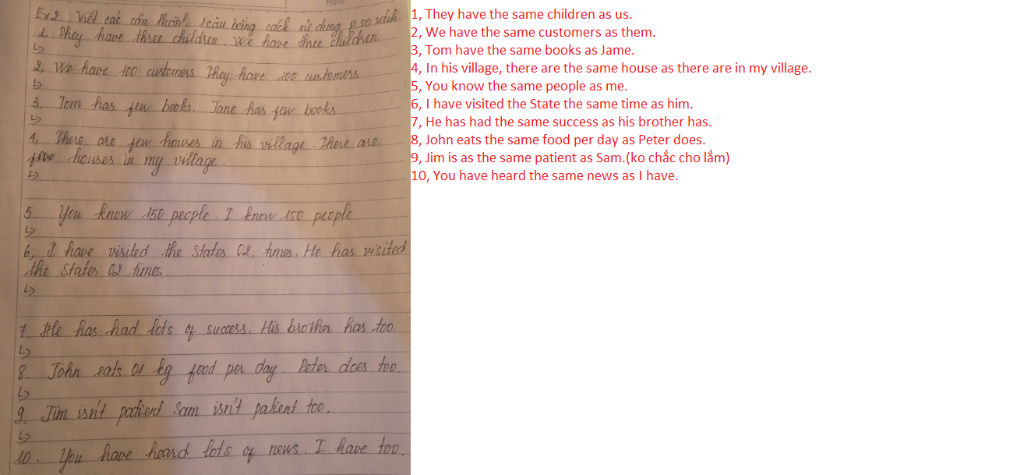 Ex2. Viết các câu thành 1 câu bằng cách sử dụng p so sánh
1. They have three children. We have three children.
2. We have 100 customers. They have 100 customers
3. Tom has few books. Jane has few books
4, There are few houses in his village. There are
few houses in my village
5. You know 150 people. I know 150 people
6, I have visited the States 02 times. He has visited
the States 02 times.
7. He has had lots of success. His brother has too.
8. John eats 01 kg food per day. Peter does too.
9. Jim isn't patient Sam isn't patient too.
10. You have heard lots of news. I have too.
1, They have the same children as us.
2, We have the same customers as them.
3, Tom have the same books as Jame.
4, In his village, there are the same house as there are in my village.
5, You know the same people as me.
6, I have visited the State the same time as him.
7, He has had the same success as his brother has.
8, John eats the same food per day as Peter does.
9, Jim is as the same patient as Sam.(ko chắc cho lắm)
10, You have heard the same news as I have.